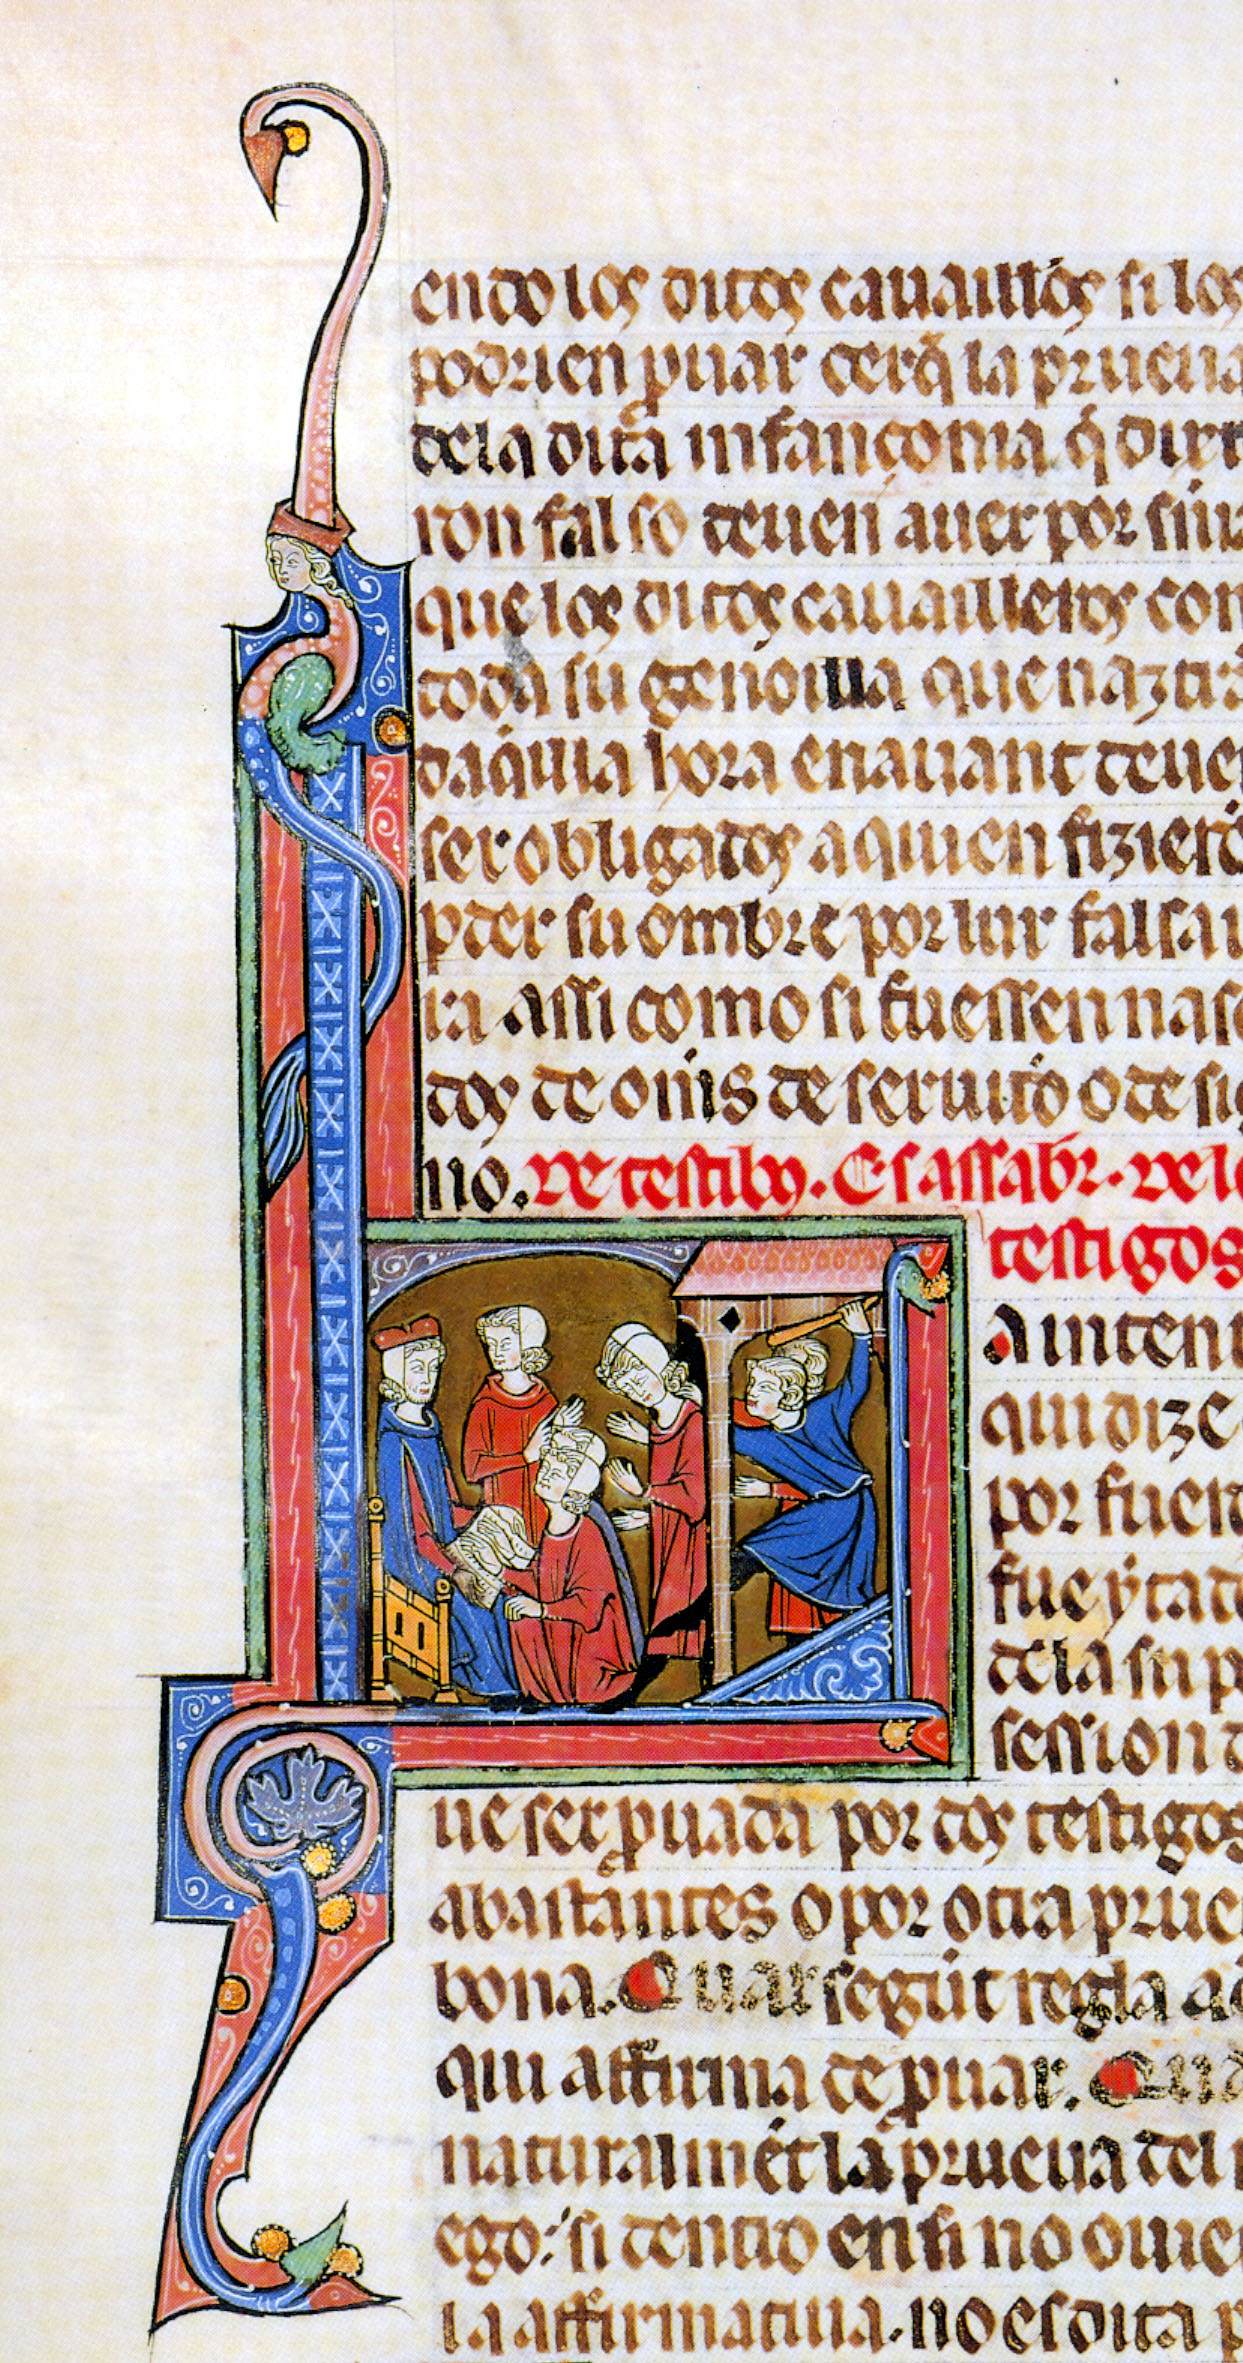 endo los ditos cauaillos si los
podrien puar cerq̃ la prueua
de la dita infançonia q̃ dixe
ron falso deuen auer por siu
que los ditos cauailleros con
toda su genoilla que nazrã
daq̃uia hora enauant deuen
ser obligados a quien fizierõ
pder su ombre por lur falsa u
ra assi como si fuessen nasç
dos de oms de seruitõ o de sig
no. De testibꝯ. Es assabr. de lo
testigos
A inten
qui dize
por fuer
fue ytad
de la su p
session
ue ser puada por dos testigos
abastantes o por otra prue
bona. Quar segũt regla a
qui affirma de puar.
naturalmẽt la prueua del
ego: si dentro en si no ouie
la affirmatiua. no es dita p